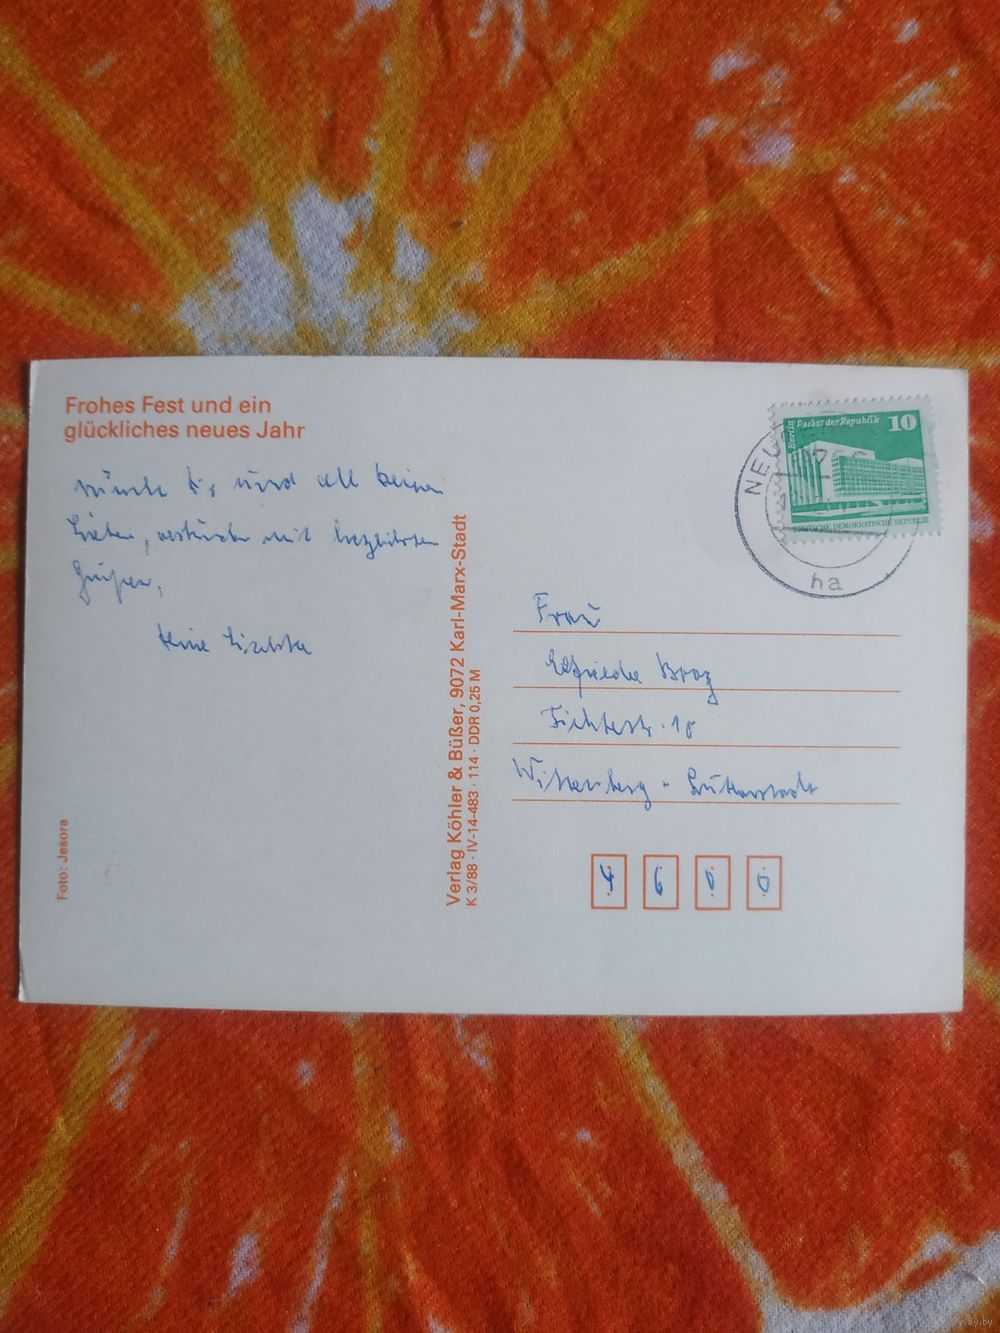 Frohes Fest und ein
glückliches neues Jahr
wünscht Dir und all deinen
Lieben, verbunden mit herzlichsten
Grüßen,
Deine
Foto: Jesora
Verlag Köhler & Büßer, 9072 Karl-Marx-Stadt
K 3/88 · IV-14-483 · 114 · DDR 0,25 M
Berlin Palast der Republik 10
DEUTSCHE DEMOKRATISCHE REPUBLIK
NEU
ha
Frau
Elfriede
Fichtestr. 10
Wittenberg - Lutherstadt
4 6 0 0
ay.by